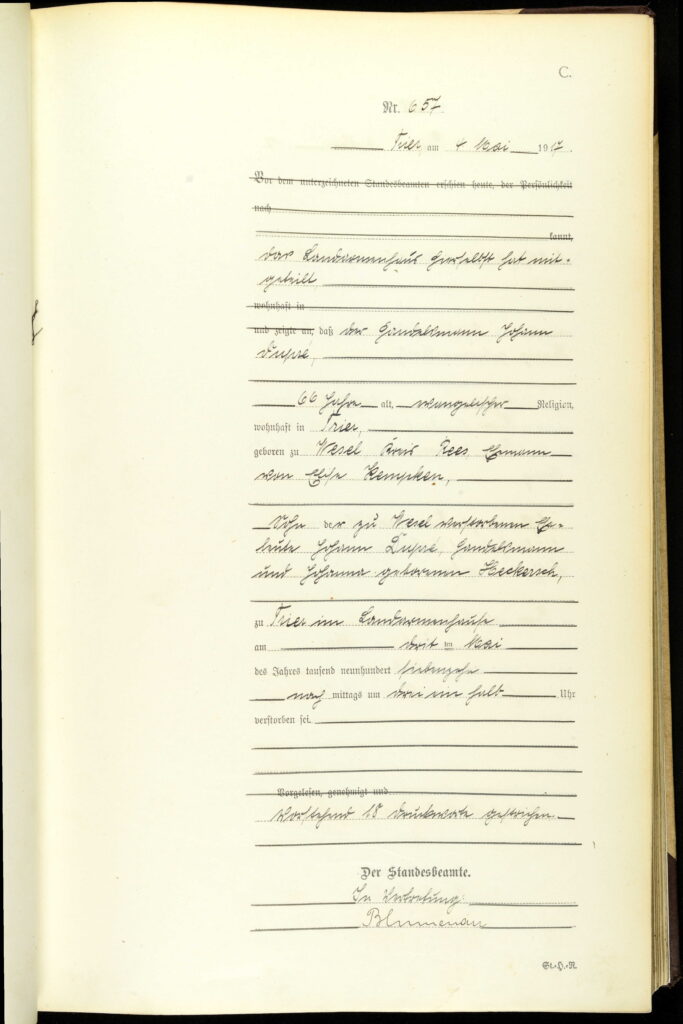 C.
Nr. 657.
Trier am 4 Mai 1917.
Vor dem unterzeichneten Standesbeamten erschien heute, der Persönlichkeit
nach
kannt,
das Landarmenhaus hierselbst hat mit-
geteilt
wohnhaft in
und zeigte an, daß der Handelsmann Johann
Dupré,
66 Jahre alt, evangelischer Religion,
wohnhaft in Trier,
geboren zu Wesel Kreis Rees, Ehemann
von Else Kempken,
Sohn der zu Wesel verstorbenen Ehe-
leute Johann Dupré, Handelsmann
und Johanna geborenen Heckersch,
zu Trier im Landarmenhause
am dritten Mai
des Jahres tausend neunhundert siebenzehn
nach mittags um drei ein halb Uhr
verstorben sei.
Vorgelesen, genehmigt und
Vorstehend 18 Druckworte gestrichen.
Der Standesbeamte.
In Vertretung:
Blumenau
St.-H.-R.